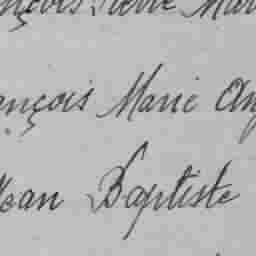 ançois Pierre Mar
ançois Marie Ang
Jean Baptiste